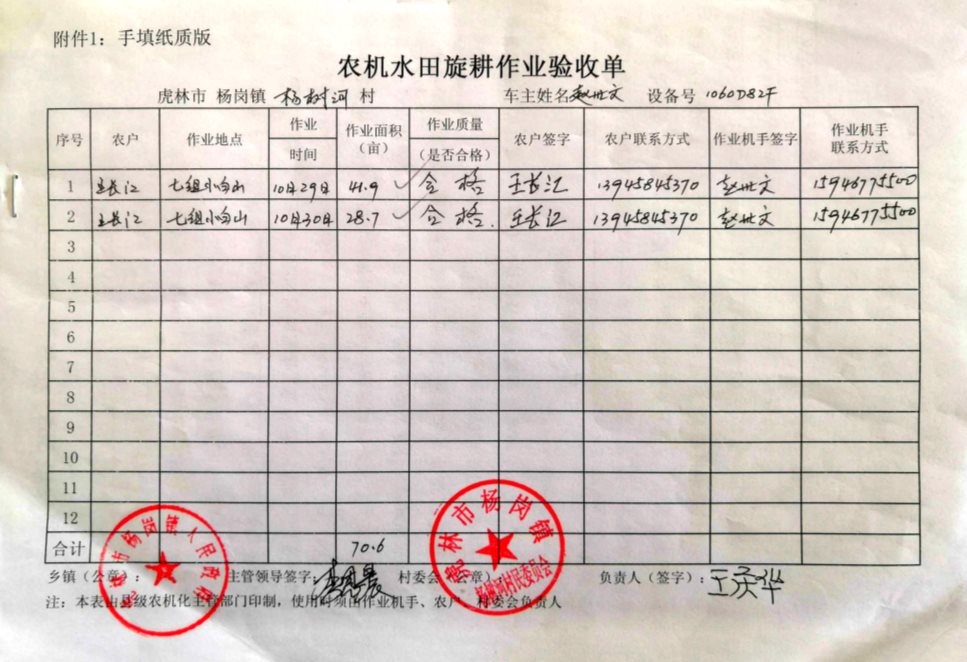 附件1：手填纸质版
农机水田旋耕作业验收单
虎林市 杨岗镇 杨树河 村 车主姓名 赵世文 设备号 1060D82F
序号 农户 作业地点 作业时间 作业面积（亩） 作业质量（是否合格） 农户签字 农户联系方式 作业机手签字 作业机手联系方式
1 王长江 七组小白山 10月29日 41.9 合格 王长江 13945845370 赵世文 15946775500
2 王长江 七组小白山 10月30日 28.7 合格. 王长江 13945845370 赵世文 15946775500
3
4
5
6
7
8
9
10
11
12
合计 70.6
乡镇（公章）： 主管领导签字： 村委会（公章） 负责人（签字）：
注：本表由县级农机化主管部门印制，使用时须由作业机手、农户、村委会负责人
虎林市杨岗镇人民政府
虎林市杨岗镇
杨树河村民委员会